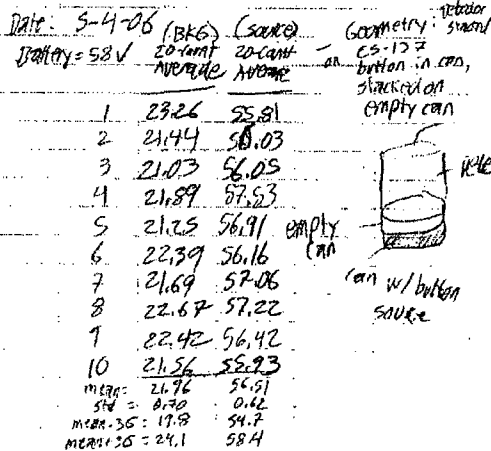 Date: 5-4-06
Battery = 58 V
(BKG) (source)
20-count 20-count
Average Average
1 23.26 55.81
2 21.44 56.03
3 21.03 56.05
4 21.89 57.53
5 21.25 56.91
6 22.39 56.16
7 21.69 57.06
8 22.67 57.22
9 22.42 56.42
10 21.56 55.93
mean = 21.96 56.51
std = 0.70 0.62
mean-3σ = 19.8 54.7
mean+3σ = 24.1 58.4
Geometry:
CS-137
button in can,
stacked on
empty can
empty
can
can w/ button
source